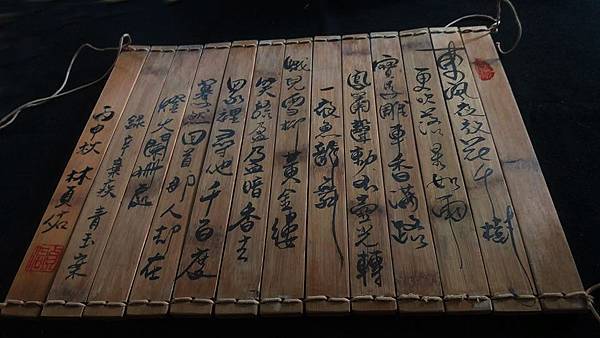 東風夜放花千樹
更吹落星如雨
寶馬雕車香滿路
鳳簫聲動玉壺光轉
一夜魚龍舞
蛾兒雪柳黃金縷
笑語盈盈暗香去
眾裡尋他千百度
驀然回首那人卻在
燈火闌珊處
錄辛棄疾青玉案
丙申秋 林